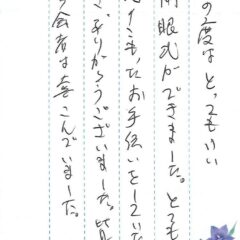 の度はとってもいい
開眼式ができました。とても
も、たお手伝いをしていた
ざ、ありがとうございました。皆
会者は喜こんでいました。